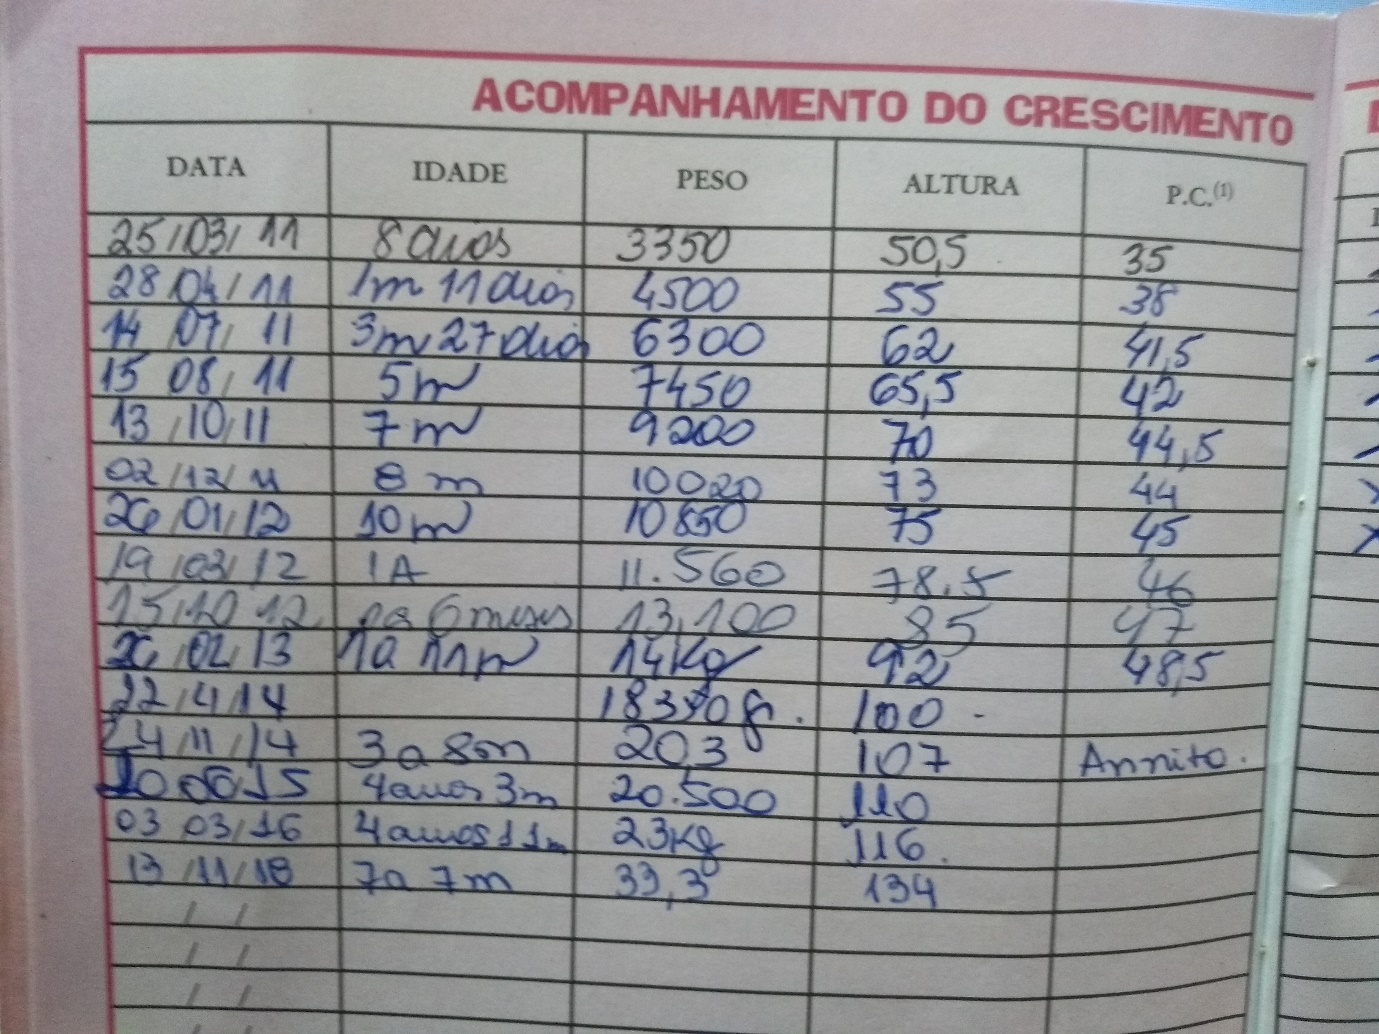 ACOMPANHAMENTO DO CRESCIMENTO
DATA IDADE PESO ALTURA P.C.(1)
25/03/11 8 dias 3350 50,5 35
28/04/11 1m 11 dias 4500 55 38
14 07/11 3m 27 dias 6300 62 41,5
15 08/11 5m 7450 65,5 42
13/10/11 7m 9200 70 44,5
02/12/11 8m 10020 73 44
26/01/12 10m 10850 75 45
19/03/12 1A 11.560 78,5 46
15/10 12 6 meses 13,100 85 47
26/02/13 1a 11m 14Kg 92 48,5
22/4/14 100 -
24/11/14 3a 8m 20,3 107 Annito.
4 anos 3m 20.500 110
03 03/16 4 anos 11m 23Kg 116.
13/11/18 7a 7m 33,3 134
/ /
/ /
/ /
/ /